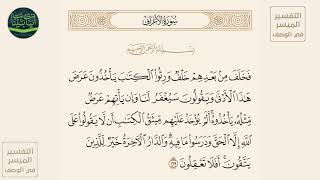 سُورَةُ الأَعْرَافِ
بِسْمِ اللَّهِ الرَّحْمَٰنِ الرَّحِيمِ
فَخَلَفَ مِنۢ بَعْدِهِمْ خَلْفٌ وَرِثُوا۟ ٱلْكِتَٰبَ يَأْخُذُونَ عَرَضَ
هَٰذَا ٱلْأَدْنَىٰ وَيَقُولُونَ سَيُغْفَرُ لَنَا وَإِن يَأْتِهِمْ عَرَضٌ
مِّثْلُهُۥ يَأْخُذُوهُ ۚ أَلَمْ يُؤْخَذْ عَلَيْهِم مِّيثَٰقُ ٱلْكِتَٰبِ أَن لَّا يَقُولُوا۟ عَلَى
ٱللَّهِ إِلَّا ٱلْحَقَّ وَدَرَسُوا۟ مَا فِيهِ ۗ وَٱلدَّارُ ٱلْءَاخِرَةُ خَيْرٌ لِّلَّذِينَ
يَتَّقُونَ ۗ أَفَلَا تَعْقِلُونَ ١٦٩
التفسير
الميسر
في الوصف
التفسير
الميسر
في الوصف